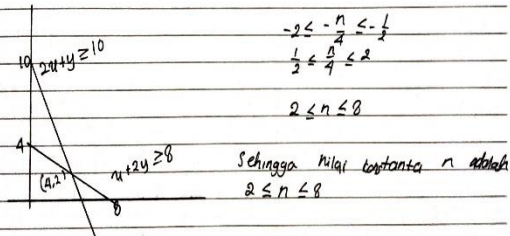 10
2x+y≥10
4
(4,2)
x+2y≥8
8
-2 ≤ -n/4 ≤ -1/2
1/2 ≤ n/4 ≤ 2
2 ≤ n ≤ 8
Sehingga nilai konstanta n adalah
2 ≤ n ≤ 8